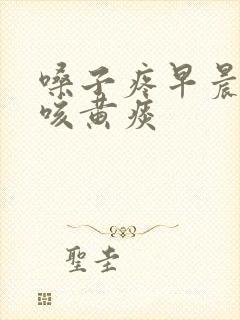 嗓子疼早晨
咳黄痰
聖圭